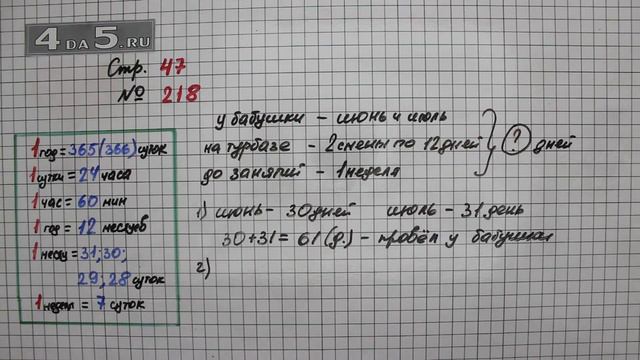 4DA5.RU
Стр. 47
№ 218
у бабушки – июнь и июль
на турбазе – 2 смены по 12 дней
до занятий – 1 неделя
? дней
1 год = 365 (366) суток
1 сутки = 24 часа
1 час = 60 мин
1 год = 12 месяцев
1 месяц = 31; 30;
29; 28 суток
1 неделя = 7 суток
1) июнь – 30 дней июль – 31 день
30 + 31 = 61 (д.) – провёл у бабушки
2)